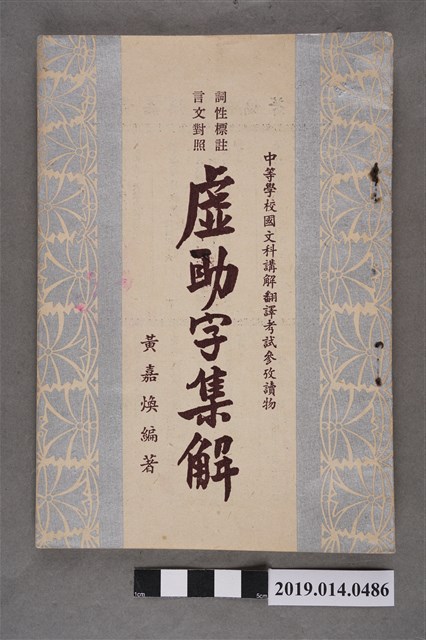 中等學校國文科講解翻譯考試參攷讀物
詞性標註
言文對照
虛助字集解
黃嘉煥編著
1cm
5cm
2019.014.0486